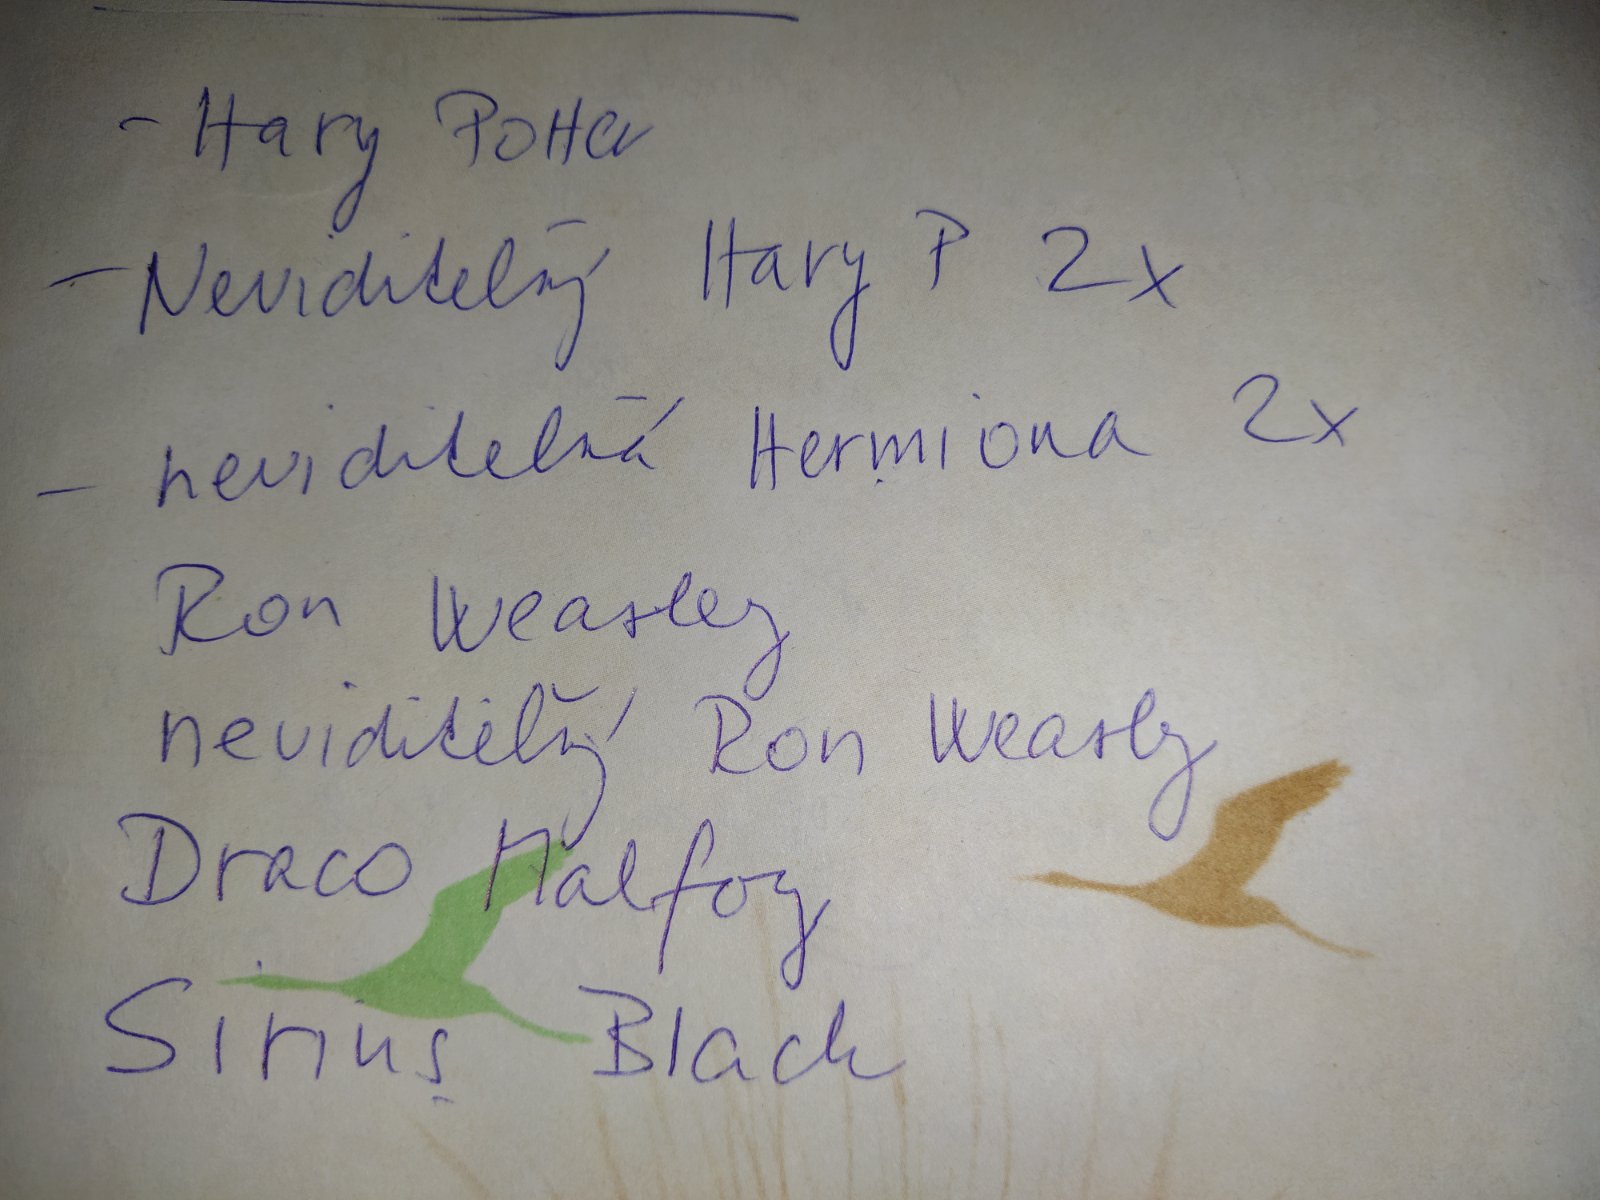 - Hary Potter
- Neviditelný Hary P 2x
- neviditelná Hermiona 2x
Ron Weasley
neviditelný Ron Weasly
Draco Malfoy
Sirius Black